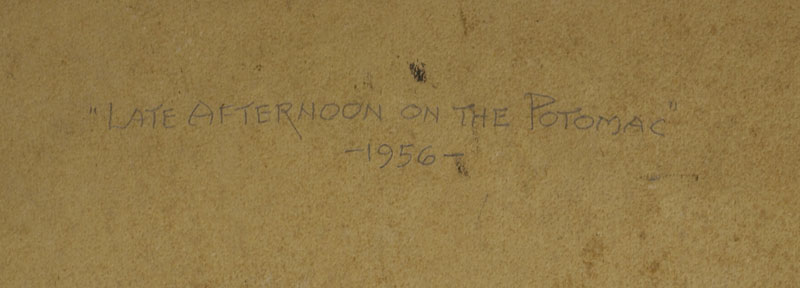 "LATE AFTERNOON ON THE POTOMAC"
-1956-